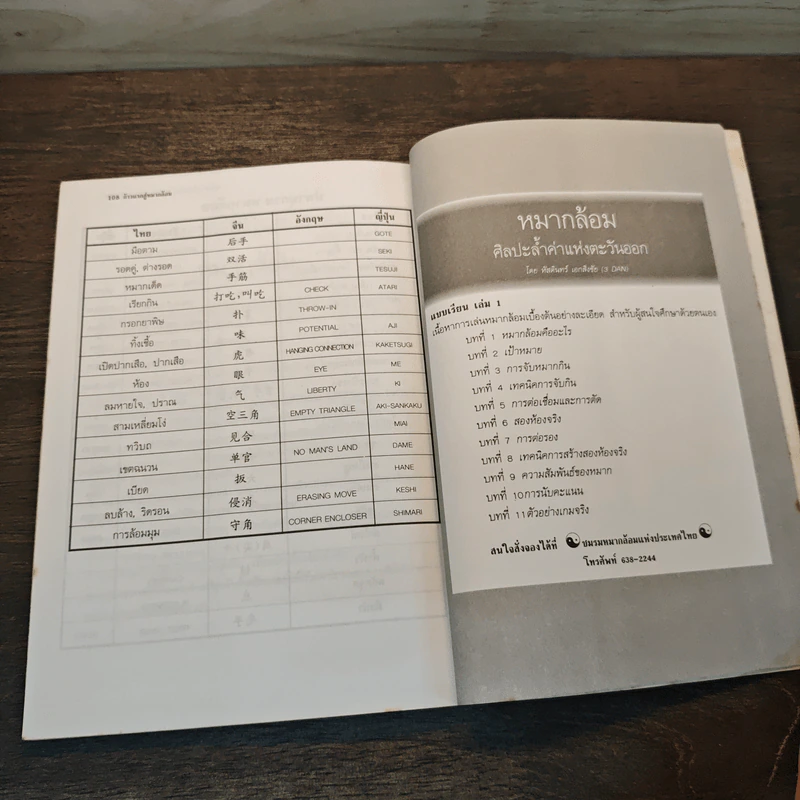 188 ก้าวแรกสู่หมากล้อม
ไทย จีน อังกฤษ ญี่ปุ่น
มือตาม 后手 GOTE
รอดคู่, ต่างรอด 双活 SEKI
หมากเด็ด 手筋 TESUJI
เรียกกิน 打吃,叫吃 CHECK ATARI
กรอกยาพิษ 扑 THROW-IN
ทิ้งเชื้อ 味 POTENTIAL AJI
เปิดปากเสือ, ปากเสือ 虎 HANGING CONNECTION KAKETSUGI
ห้อง 眼 EYE ME
ลมหายใจ, ปราณ 气 LIBERTY KI
สามเหลี่ยมโง่ 空三角 EMPTY TRIANGLE AKI-SANKAKU
ทวิบถ 见合 MIAI
เขตฉนวน 单官 NO MAN'S LAND DAME
เบียด 扳 HANE
ลบล้าง, ริดรอน 侵消 ERASING MOVE KESHI
การล้อมมุม 守角 CORNER ENCLOSER SHIMARI
หมากล้อม
ศิลปะล้ำค่าแห่งตะวันออก
โดย หัสดินทร์ เอกสิงชัย (3 DAN)
แบบเรียน เล่ม 1
เนื้อหาการเล่นหมากล้อมเบื้องต้นอย่างละเอียด สำหรับผู้สนใจศึกษาด้วยตนเอง
บทที่ 1 หมากล้อมคืออะไร
บทที่ 2 เป้าหมาย
บทที่ 3 การจับหมากกิน
บทที่ 4 เทคนิคการจับกิน
บทที่ 5 การต่อเชื่อมและการตัด
บทที่ 6 สองห้องจริง
บทที่ 7 การต่อรอง
บทที่ 8 เทคนิคการสร้างสองห้องจริง
บทที่ 9 ความสัมพันธ์ของหมาก
บทที่ 10 การนับคะแนน
บทที่ 11 ตัวอย่างเกมจริง
สนใจสั่งจองได้ที่ ชมรมหมากล้อมแห่งประเทศไทย
โทรศัพท์ 638-2244